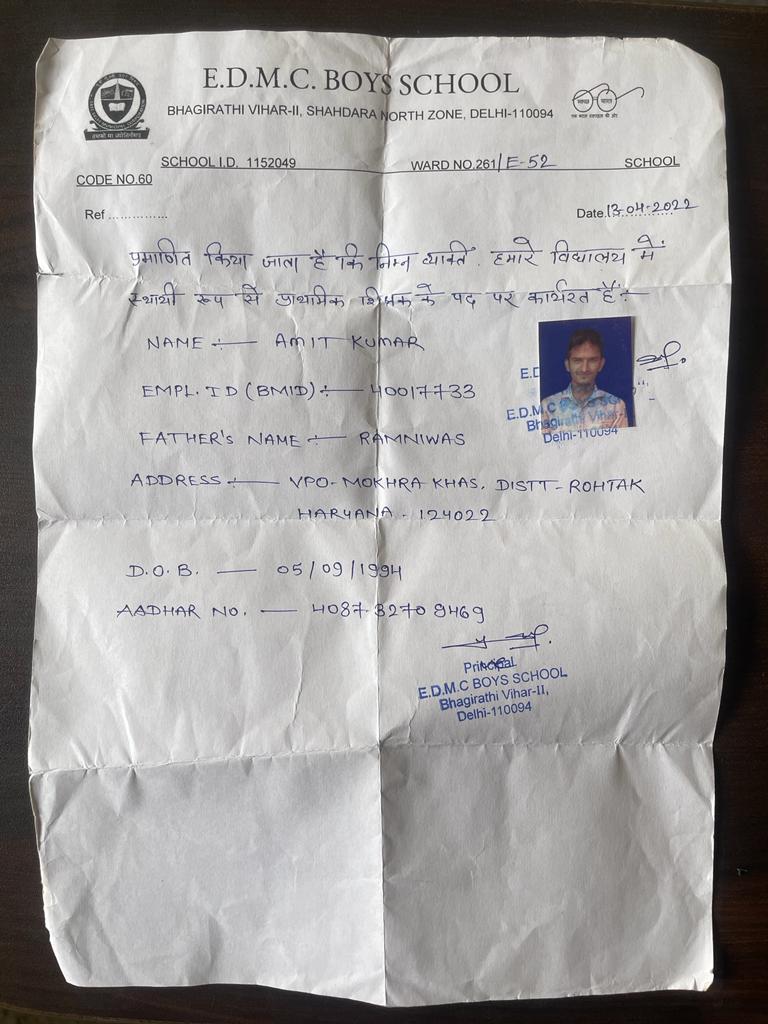 E.D.M.C. BOYS SCHOOL
BHAGIRATHI VIHAR-II, SHAHDARA NORTH ZONE, DELHI-110094
स्वच्छ भारत
एक कदम स्वच्छता की ओर
तमसो मा ज्योतिर्गमय
SCHOOL I.D. 1152049 WARD NO.261/E-52 SCHOOL
CODE NO.60
Ref .............. Date.13-04-2022
प्रमाणित किया जाता है कि निम्न व्यक्ति हमारे विद्यालय में
स्थायी रूप से प्राथमिक शिक्षक के पद पर कार्यरत है :-
NAME :- AMIT KUMAR
EMPL. ID (BMID) :- 40017733
FATHER'S NAME :- RAMNIWAS
ADDRESS :- VPO- MOKHRA KHAS, DISTT- ROHTAK
HARYANA - 124022
E.D.M.C
Bhagirathi Vihar-
Delhi-110094
D.O.B. — 05/09/1994
AADHAR NO. — 4087 3270 9469
Principal
E.D.M.C BOYS SCHOOL
Bhagirathi Vihar-II,
Delhi-110094